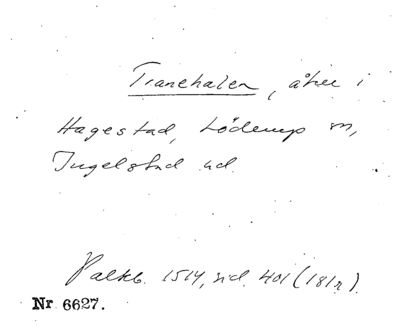 Tranehalen, åker i
Hagestad, Löderup sn,
Ingelstad hd.
Palteb. 1514, sid. 401 (181r).
Nr 6627.